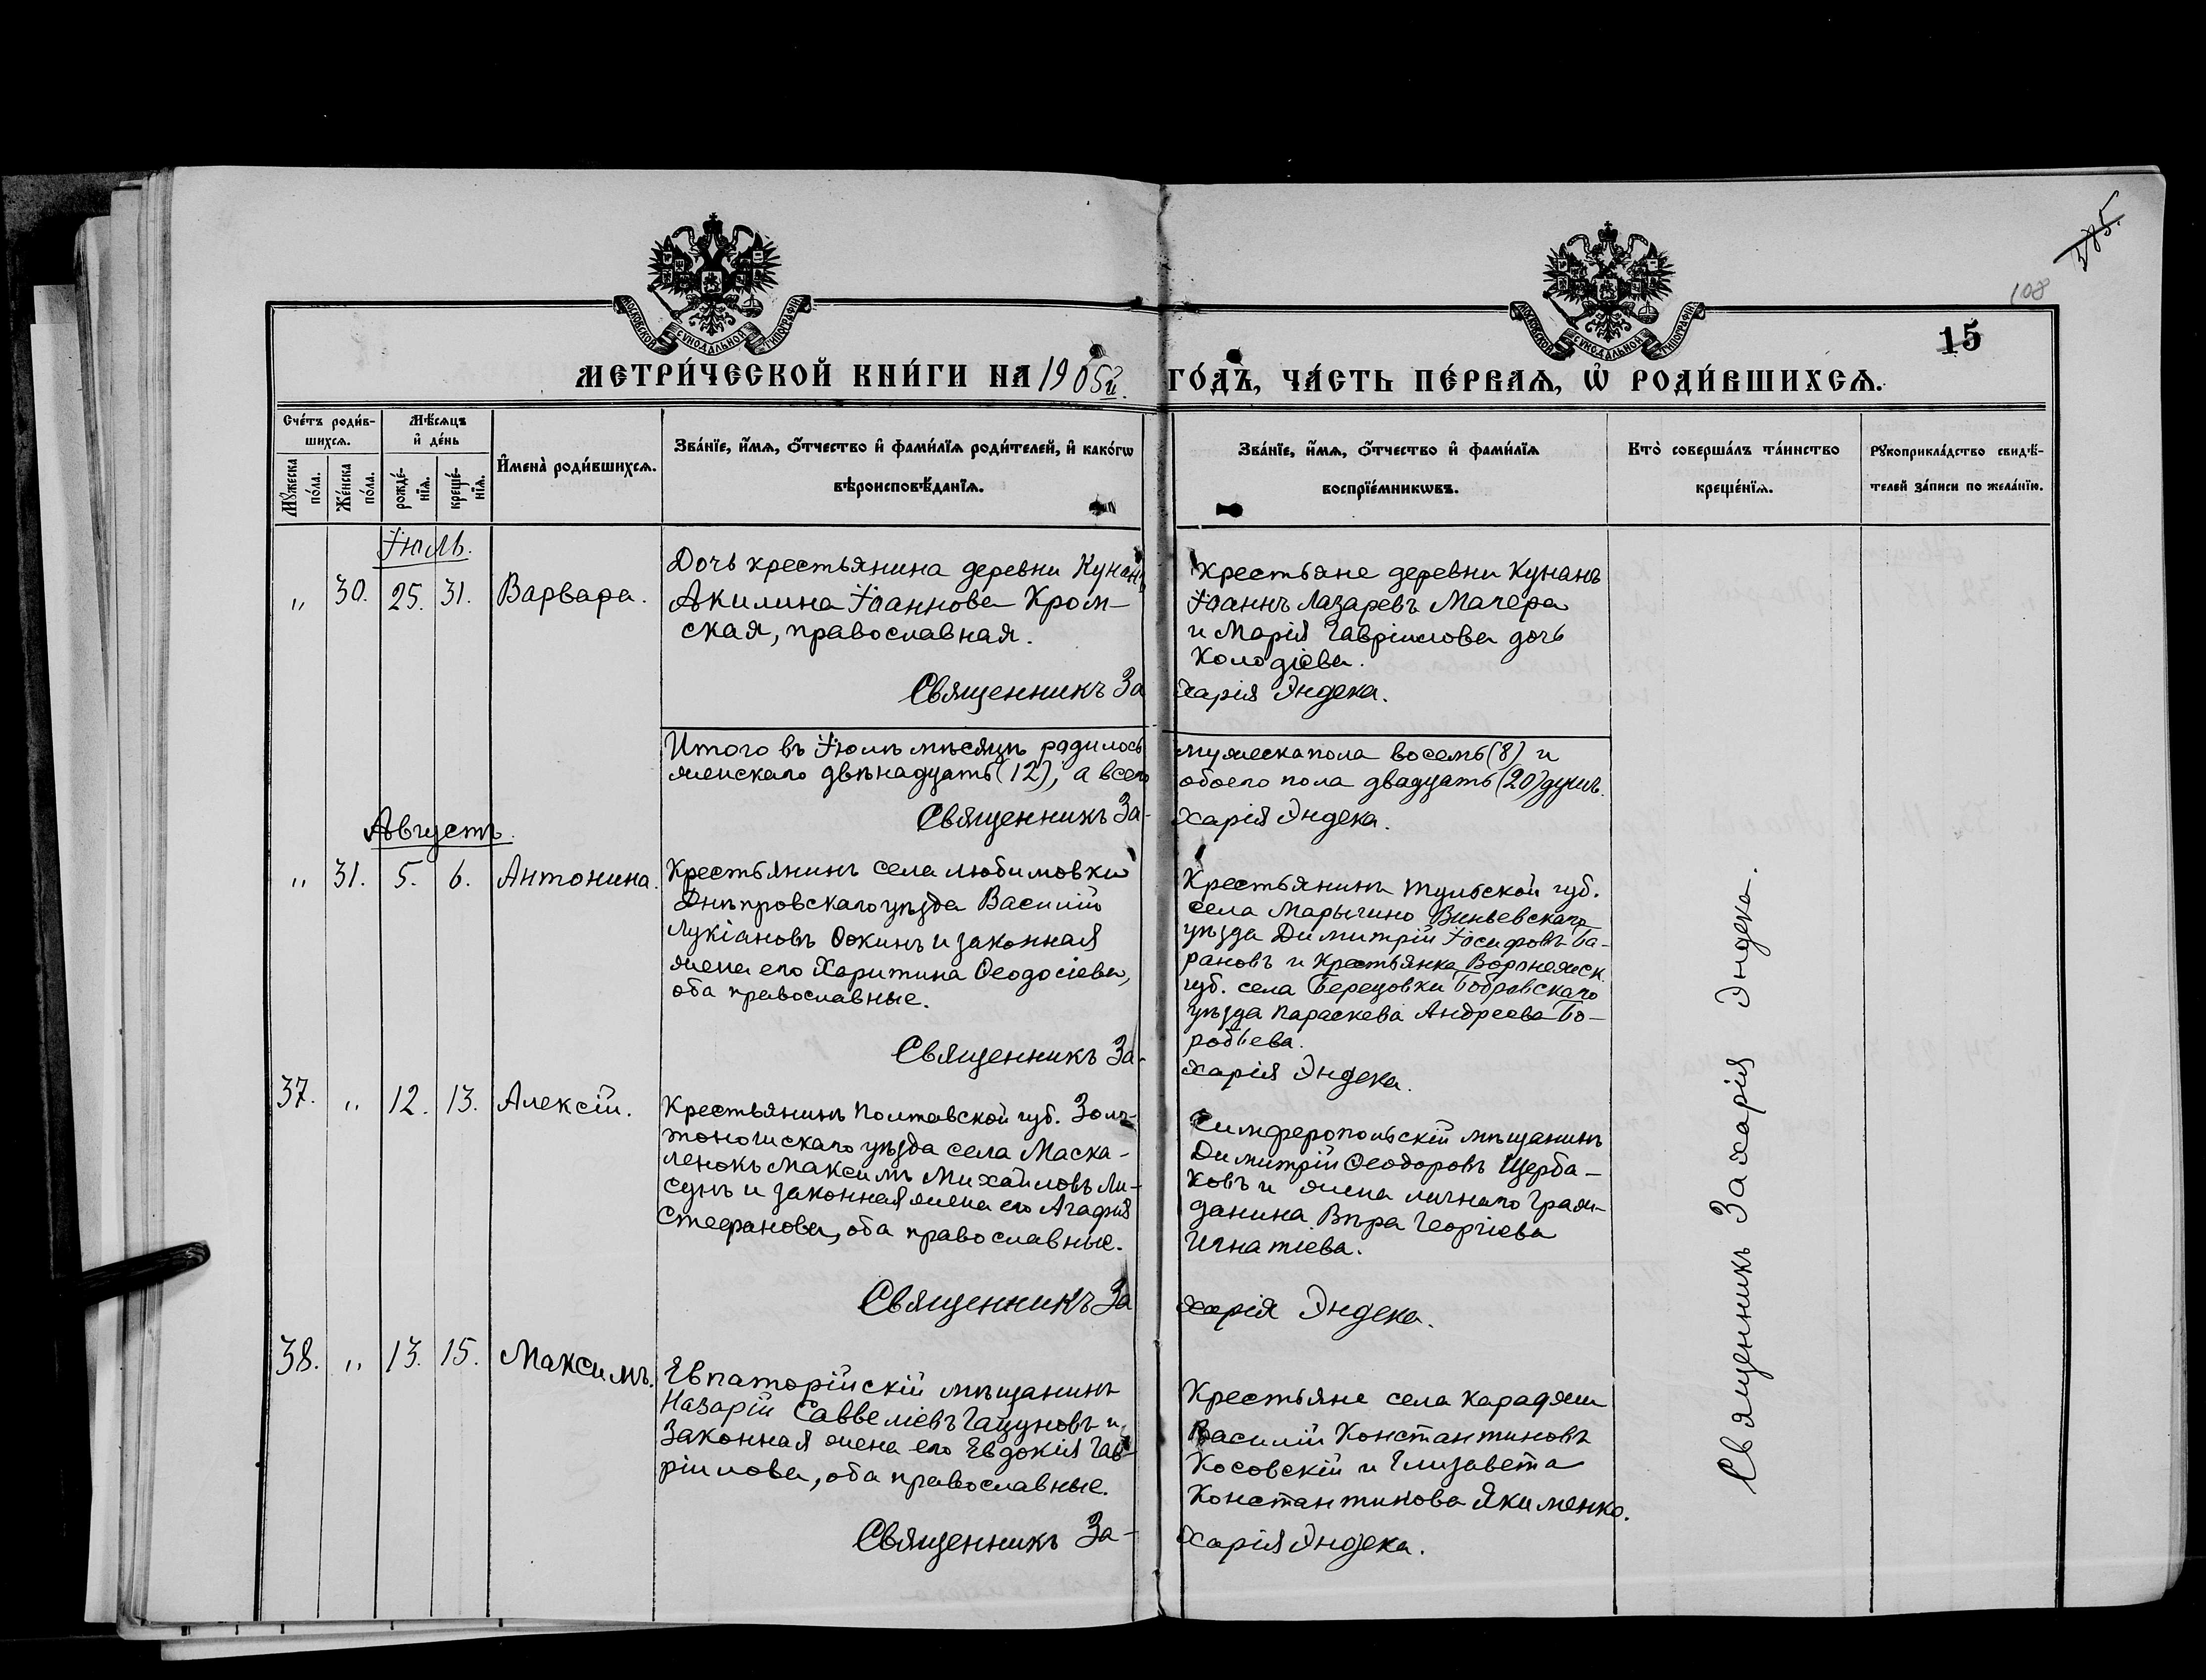 385.
108
15
МОСКОВСКОЙ СУНОДАЛЬНОЙ ТИПОГРАФІИ
МОСКОВСКОЙ СУНОДАЛЬНОЙ ТИПОГРАФІИ
МЕТРИ́ЧЕСКОЙ КНИ́ГИ НА 1905й. ГО́ДЪ, ЧА́СТЬ ПЕ́РВАѦ, Ѡ҆ РОДИ́ВШИХСѦ.
Сче́тъ роди́в-
шихсѧ.
Мѣ́сѧцъ
и҆ де́нь
Мꙋ́жеска
по́ла.
Же́нска
по́ла.
рожде́-
нїѧ.
креще́-
нїѧ.
И҆мена̀ роди́вшихсѧ.
Зва́нїе, и҆́мѧ, ѻ҆́тчество и҆ фами́лїѧ роди́телей, и҆ како́гѡ
вѣроисповѣ́данїѧ.
Зва́нїе, и҆́мѧ, ѻ҆́тчество и҆ фами́лїѧ
воспрїе́мникѡвъ.
Кто̀ соверша́лъ та́инство
креще́нїѧ.
Рꙋкоприкла́дство свидѣ́-
телей за́писи по жела́нїю.
Іюль.
„ 30. 25. 31. Варвара.
Дочь крестьянина деревни Кунанъ
Акилина Іоаннова Кром-
ская, православная.
Священникъ За
Крестьяне деревни Кунанъ
Іоаннъ Лазаревъ Мачера
и Марія Гавріилова дочь
Колодіева.
харія Эндека.
Итого въ Іюлѣ мѣсяцѣ родилось мужеска пола восемь (8) и
женскаго двѣнадцать (12), а всего обоего пола двадцать (20) душъ.
Священникъ За- харія Эндека.
Августъ.
„ 31. 5. 6. Антонина.
Крестьянинъ села Любимовки
Днѣпровскаго уѣзда Василій
Лукіановъ Ѳокинъ и законная
жена его Харитина Ѳеодосіева,
оба православные.
Священникъ За-
Крестьянинъ Тульской губ.
села Марыгино Веневскаго
уѣзда Димитрій Іосифовъ Ба-
рановъ и Крестьянка Воронежск.
губ. села Березовки Бобровскаго
уѣзда Параскева Андреева Во-
робьева.
харія Эндека.
37. „ 12. 13. Алексій.
Крестьянинъ Полтавской губ. Золо-
тоношскаго уѣзда села Маска-
ленокъ Максимъ Михайловъ Ли-
сунъ и законная жена его Агафія
Стефанова, оба православные.
Священникъ За
Симферопольскій мѣщанинъ
Димитрій Ѳеодоровъ Щерба-
ковъ и жена личнаго Граж-
данина Вѣра Георгіева
Игнатіева.
харія Эндека.
38. „ 13. 15. Максимъ.
Евпаторійскій мѣщанинъ
Назарій Саввеліевъ Гацуновъ и
законная жена его Евдокія Гав-
ріилова, оба православные.
Священникъ За-
Крестьяне села Караджи
Василій Константиновъ
Косовскій и Елизавета
Константинова Якименко.
харія Эндека.
Священникъ Захарія Эндека.